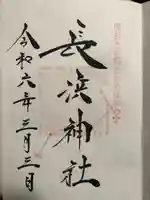 長浜神社
令和六年三月三日